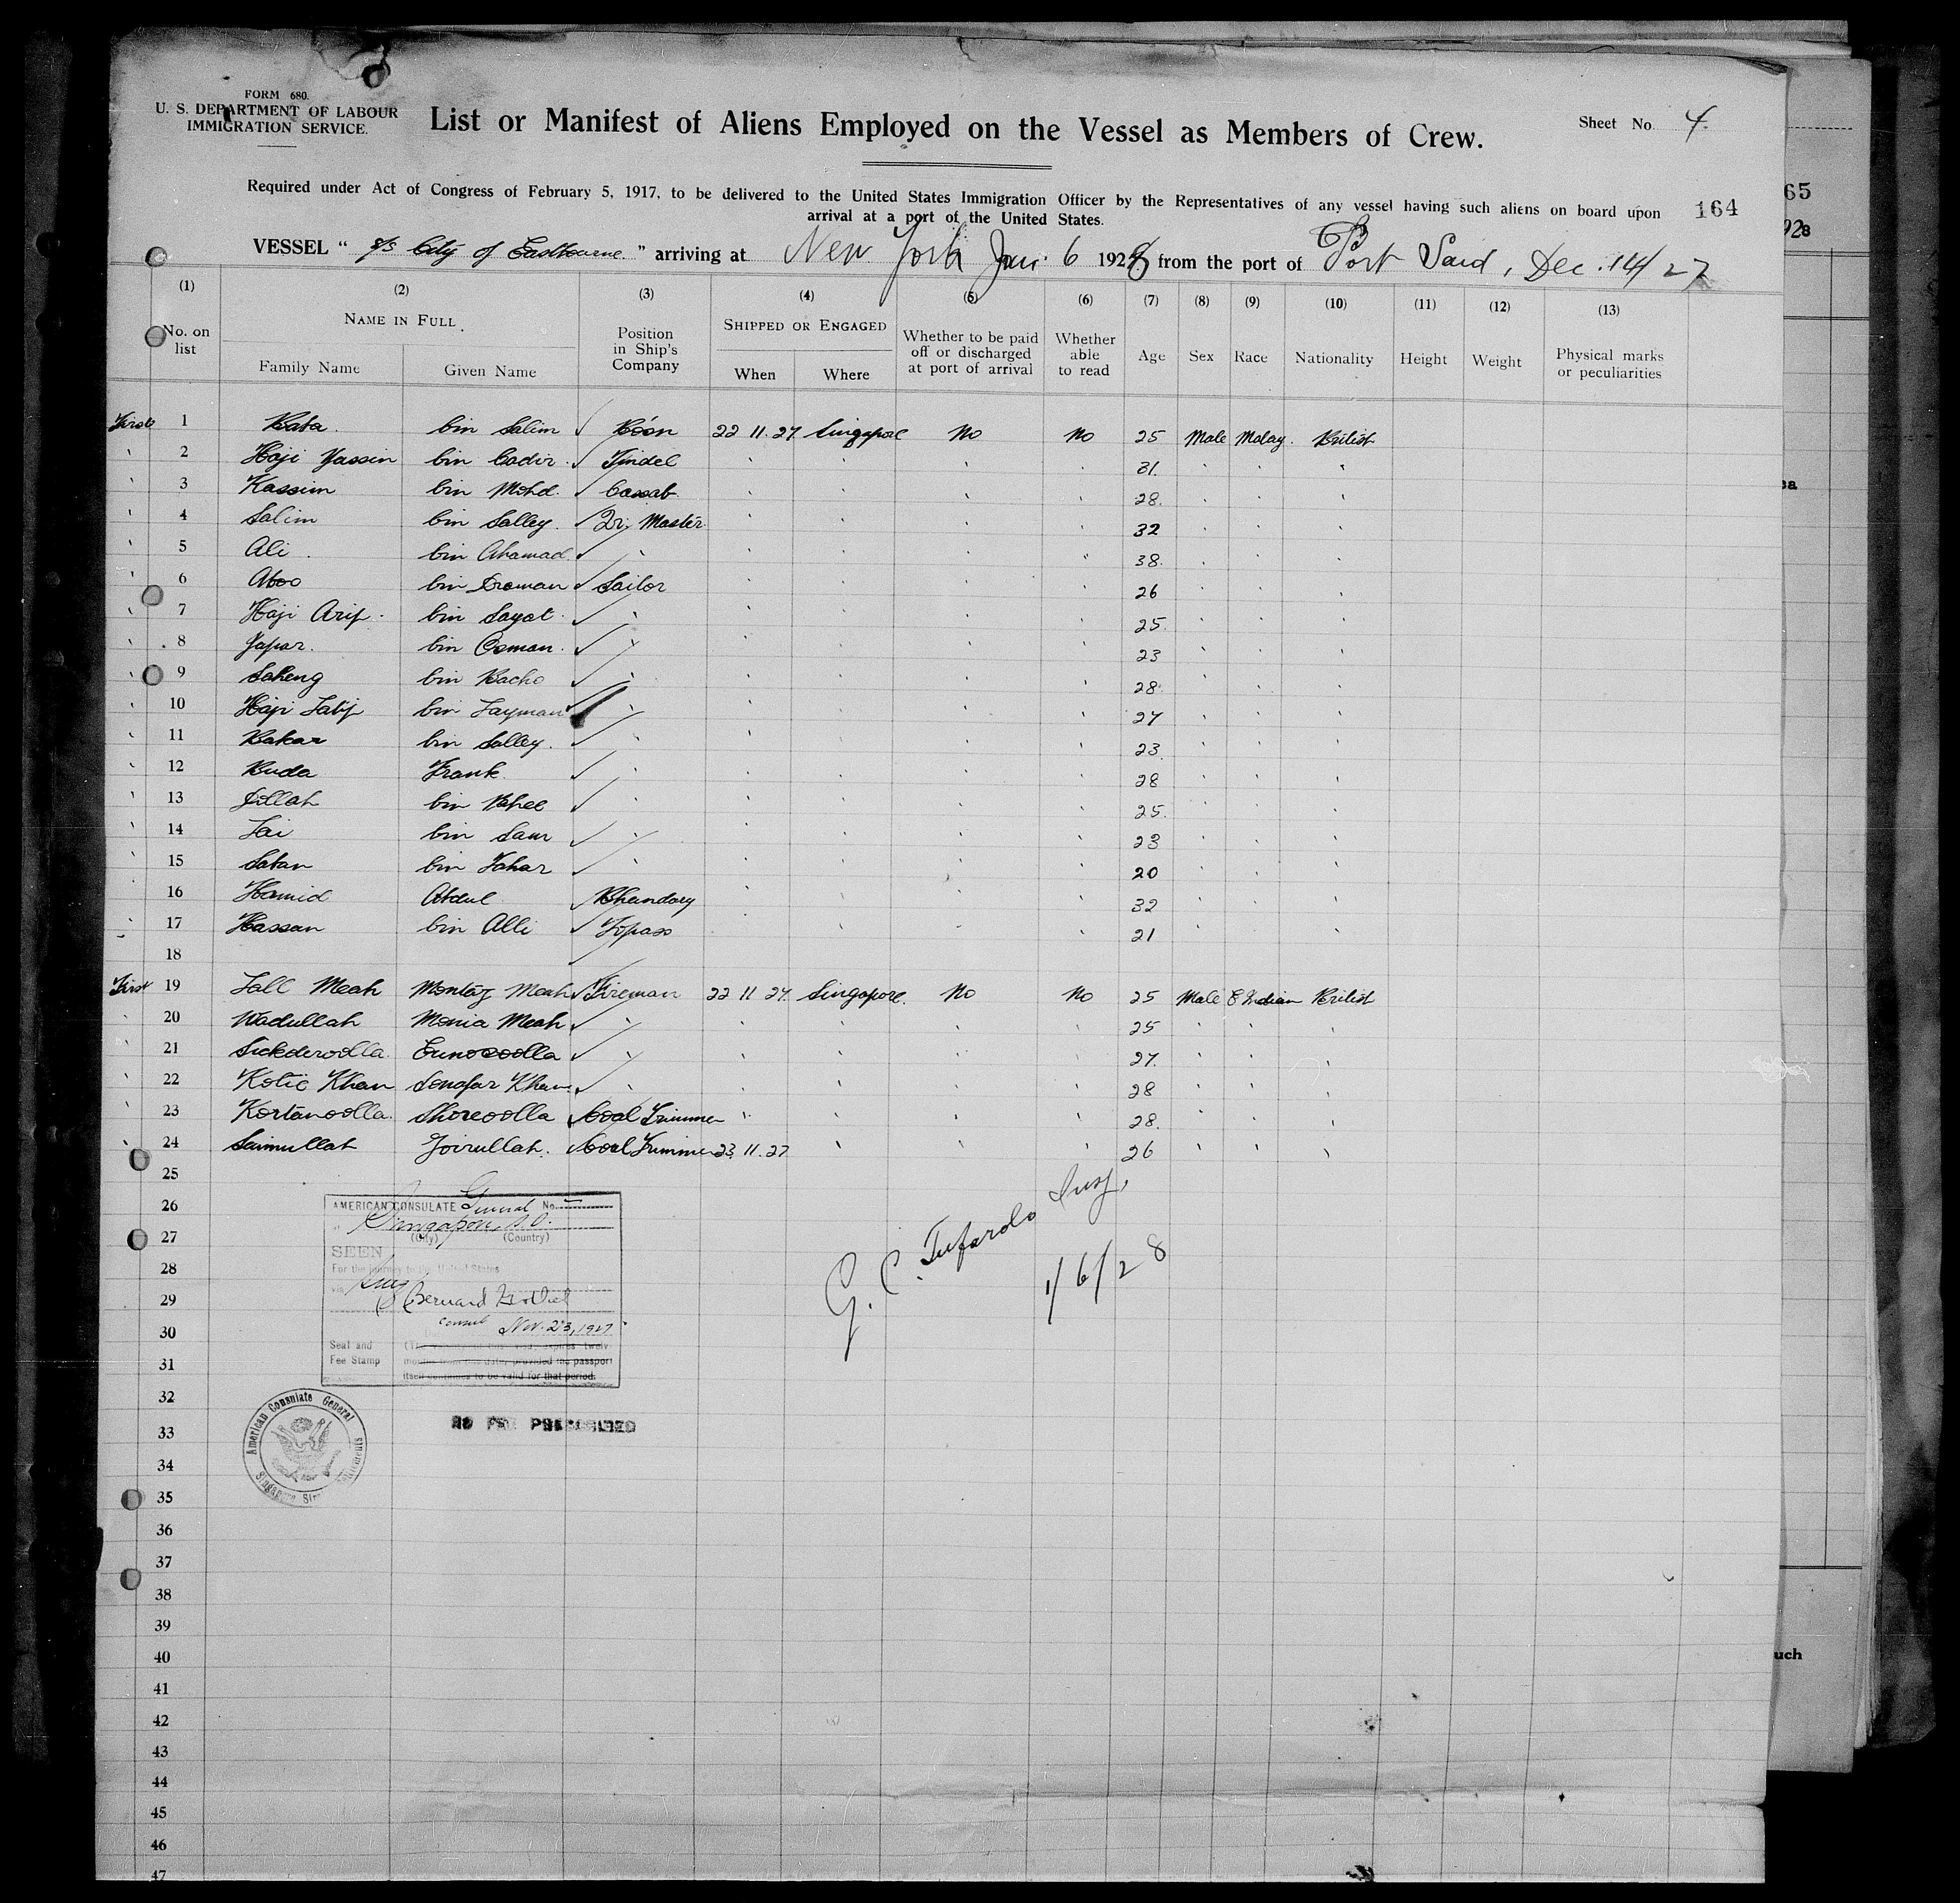 FORM 680.
U. S. DEPARTMENT OF LABOUR
IMMIGRATION SERVICE.
List or Manifest of Aliens Employed on the Vessel as Members of Crew.
Sheet No. 4.
Required under Act of Congress of February 5, 1917, to be delivered to the United States Immigration Officer by the Representatives of any vessel having such aliens on board upon
arrival at a port of the United States.
164
65
VESSEL " s/s City of Eastbourne " arriving at New York Jan. 6 1928 from the port of Port Said, Dec. 14/27
(1) (2) (3) (4) (5) (6) (7) (8) (9) (10) (11) (12) (13)
No. on list
NAME IN FULL
Family Name Given Name
Position in Ship's Company
SHIPPED OR ENGAGED
When Where
Whether to be paid off or discharged at port of arrival
Whether able to read
Age Sex Race Nationality Height Weight
Physical marks or peculiarities
First 1 Bata. bin Salim ✓ 22 11. 27 Singapore No No 25 Male Malay. British
" 2 Haji Yassin bin Cadir ✓ Tindel " " " " 31. " " "
" 3 Kassim bin Mohd. ✓ Cassab " " " " 28. " " "
" 4 Salim bin Salley. ✓ Qr. Master " " " " 32 " " "
" 5 Ali. bin Ahamad ✓ " " " " " 38. " " "
" 6 Aboo bin Draman ✓ Sailor " " " " 26 " " "
" 7 Haji Arif. bin Sayot ✓ " " " " " 25. " " "
" 8 Japar. bin Osman. ✓ " " " " " 23 " " "
" 9 Saheng bin Bacho ✓ " " " " " 28. " " "
" 10 Haji Latif bin Layman ✓ " " " " " 27 " " "
" 11 Bakar bin Salley. ✓ " " " " " 23 " " "
" 12 Buda Frank. ✓ " " " " " 28 " " "
" 13 Dollah bin ✓ " " " " " 25. " " "
" 14 Jai bin Sam ✓ " " " " " 23 " " "
" 15 Satan bin Tahar ✓ " " " " " 20 " " "
" 16 Hamid Abdul ✓ Bhandary " " " " 32 " " "
" 17 Hassan bin Alli ✓ Topass " " " " 21 " " "
18
First 19 Lall Meah Montaz Meah ✓ Fireman 22 11 27. Singapore. No No 25 Male E Indian British
" 20 Wadullah Monia Meah ✓ " " " " " 25 " " "
" 21 Sickderoolla Eunosoolla ✓ " " " " " 27. " " "
" 22 Kotic Khan Sonafar Khan ✓ " " " " " 28 " " "
" 23 Kortanoolla. Shoreoolla ✓ Coal Trimmer " " " " 28. " " "
" 24 Saimullah Joirullah. ✓ Coal Trimmer 23. 11. 27 " " " 26 " " "
25
26
27
28
29
30
31
32
33
34
35
36
37
38
39
40
41
42
43
44
45
46
47
AMERICAN CONSULATE General No.
at Singapore, S.S.
(City) (Country)
SEEN
For the journey to the United States
Bernard
Consul Nov. 23, 1927.
Seal and
Fee Stamp
months from this date, provided the passport
itself continues to be valid for that period.
American Consulate General
Singapore
NO FEE PRESCRIBED
G. C. Tufarolo Insp.
1/6/28
uch